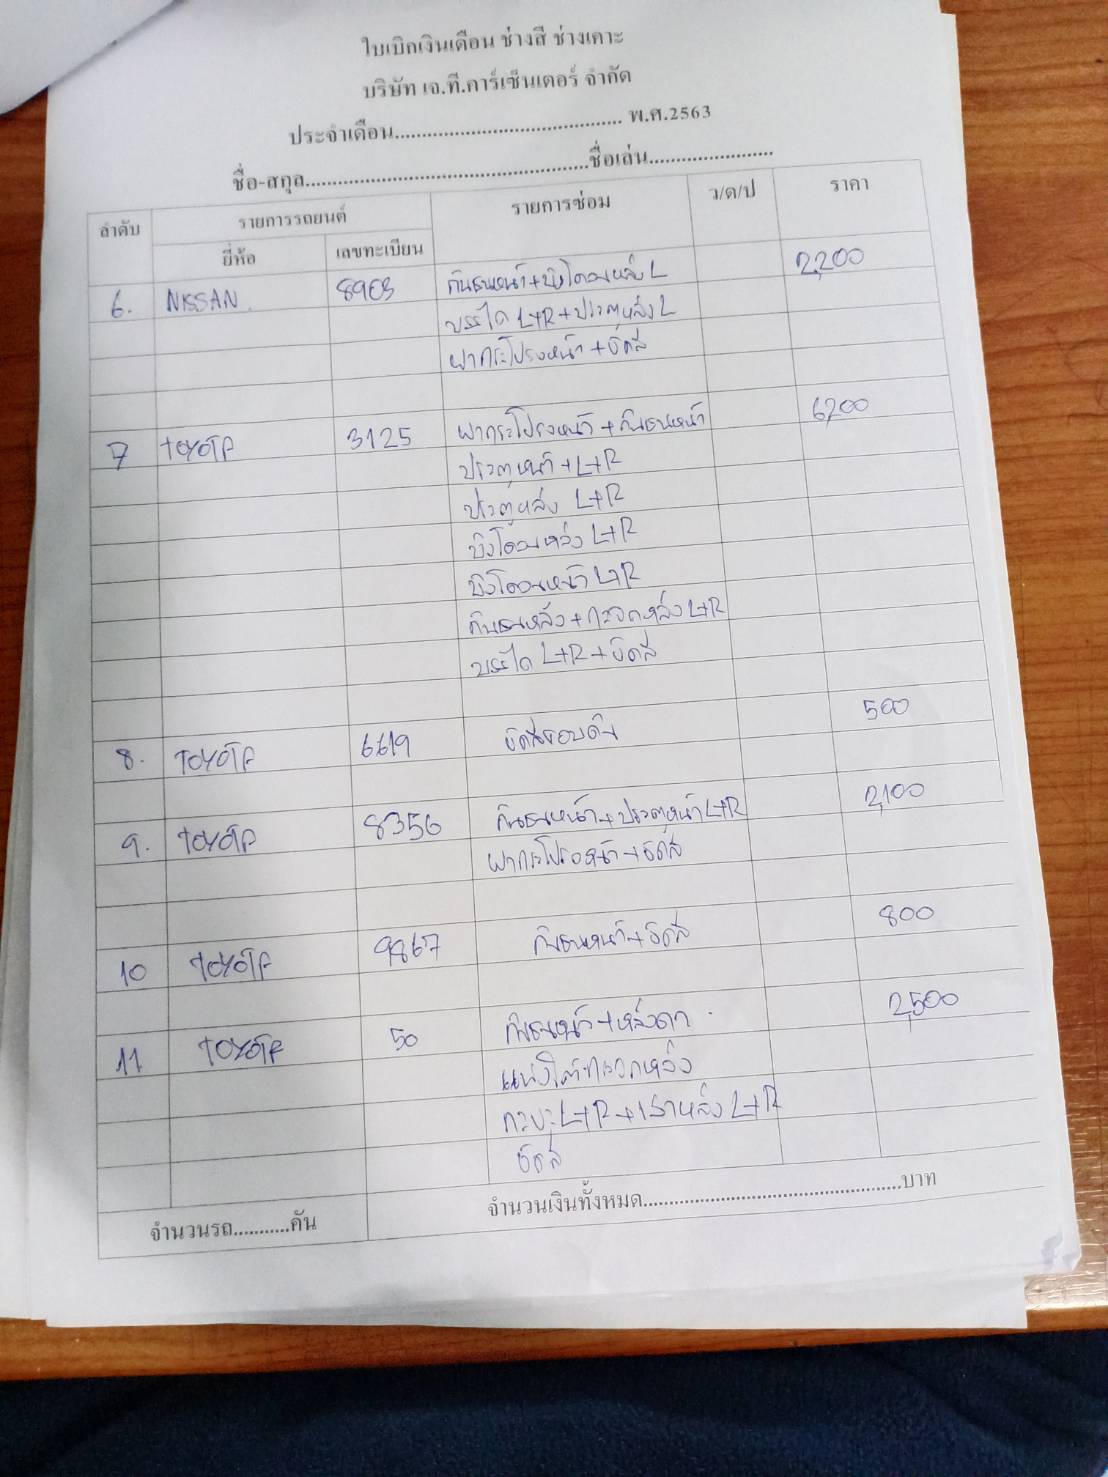 ใบเบิกเงินเดือน ช่างสี ช่างเคาะ
บริษัท เจ.ที.คาร์เซ็นเตอร์ จำกัด
ประจำเดือน.......................................... พ.ศ.2563
ชื่อ-สกุล....................................................ชื่อเล่น.......................
ลำดับ รายการรถยนต์ รายการซ่อม ว/ด/ป ราคา
ยี่ห้อ เลขทะเบียน
6. NISSAN 8903 กันชนหน้า+บังโคลนหลัง L 2,200
บรรได L+R+ประตูหลัง L
ฝากระโปรงหน้า+ขัดสี
7 TOYOTA 3125 ฝากระโปรงหน้า+กันชนหน้า 6,200
ประตูหน้า+L+R
ประตูหลัง L+R
บังโคลนหลัง L+R
บังโคลนหน้า L+R
กันชนหลัง+กระจกหลัง L+R
บรรได L+R+ขัดสี
8. TOYOTA 6619 ขัดสีรอบคัน 500
9. TOYOTA 8356 กันชนหน้า+ประตูหน้า L+R 2,100
ฝากระโปรงหน้า+ขัดสี
10 TOYOTA 9867 กันชนหน้า+ขัดสี 800
11 TOYOTA 50 กันชนหน้า+หลังคา 2,500
กระบะ L+R+เสาหลัง L+R
ขัดสี
จำนวนรถ...........คัน จำนวนเงินทั้งหมด................................................บาท